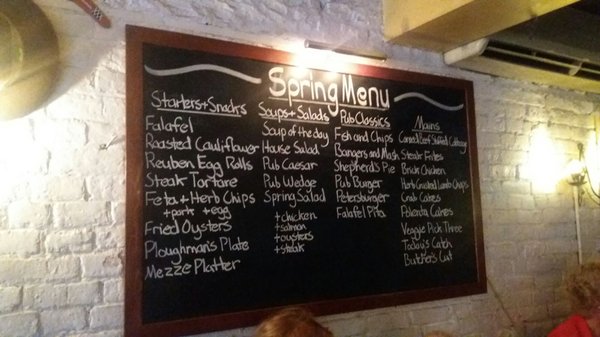 Spring Menu
Starters + Snacks
Falafel
Roasted Cauliflower
Reuben Egg Rolls
Steak Tartare
Feta + Herb Chips
+ pork + egg
Fried Oysters
Ploughman's Plate
Mezze Platter
Soups + Salads
Soup of the day
House Salad
Pub Caesar
Pub Wedge
Spring Salad
+ chicken
+ salmon
+ oysters
+ steak
Pub Classics
Fish and Chips
Bangers and Mash
Shepherd's Pie
Pub Burger
Petersburger
Falafel Pita
Mains
Corned Beef Stuffed Cabbage
Steak Frites
Brick Chicken
Herb Crusted Lamb Chops
Crab Cakes
Polenta Cakes
Veggie Pick Three
Today's Catch
Butcher's Cut